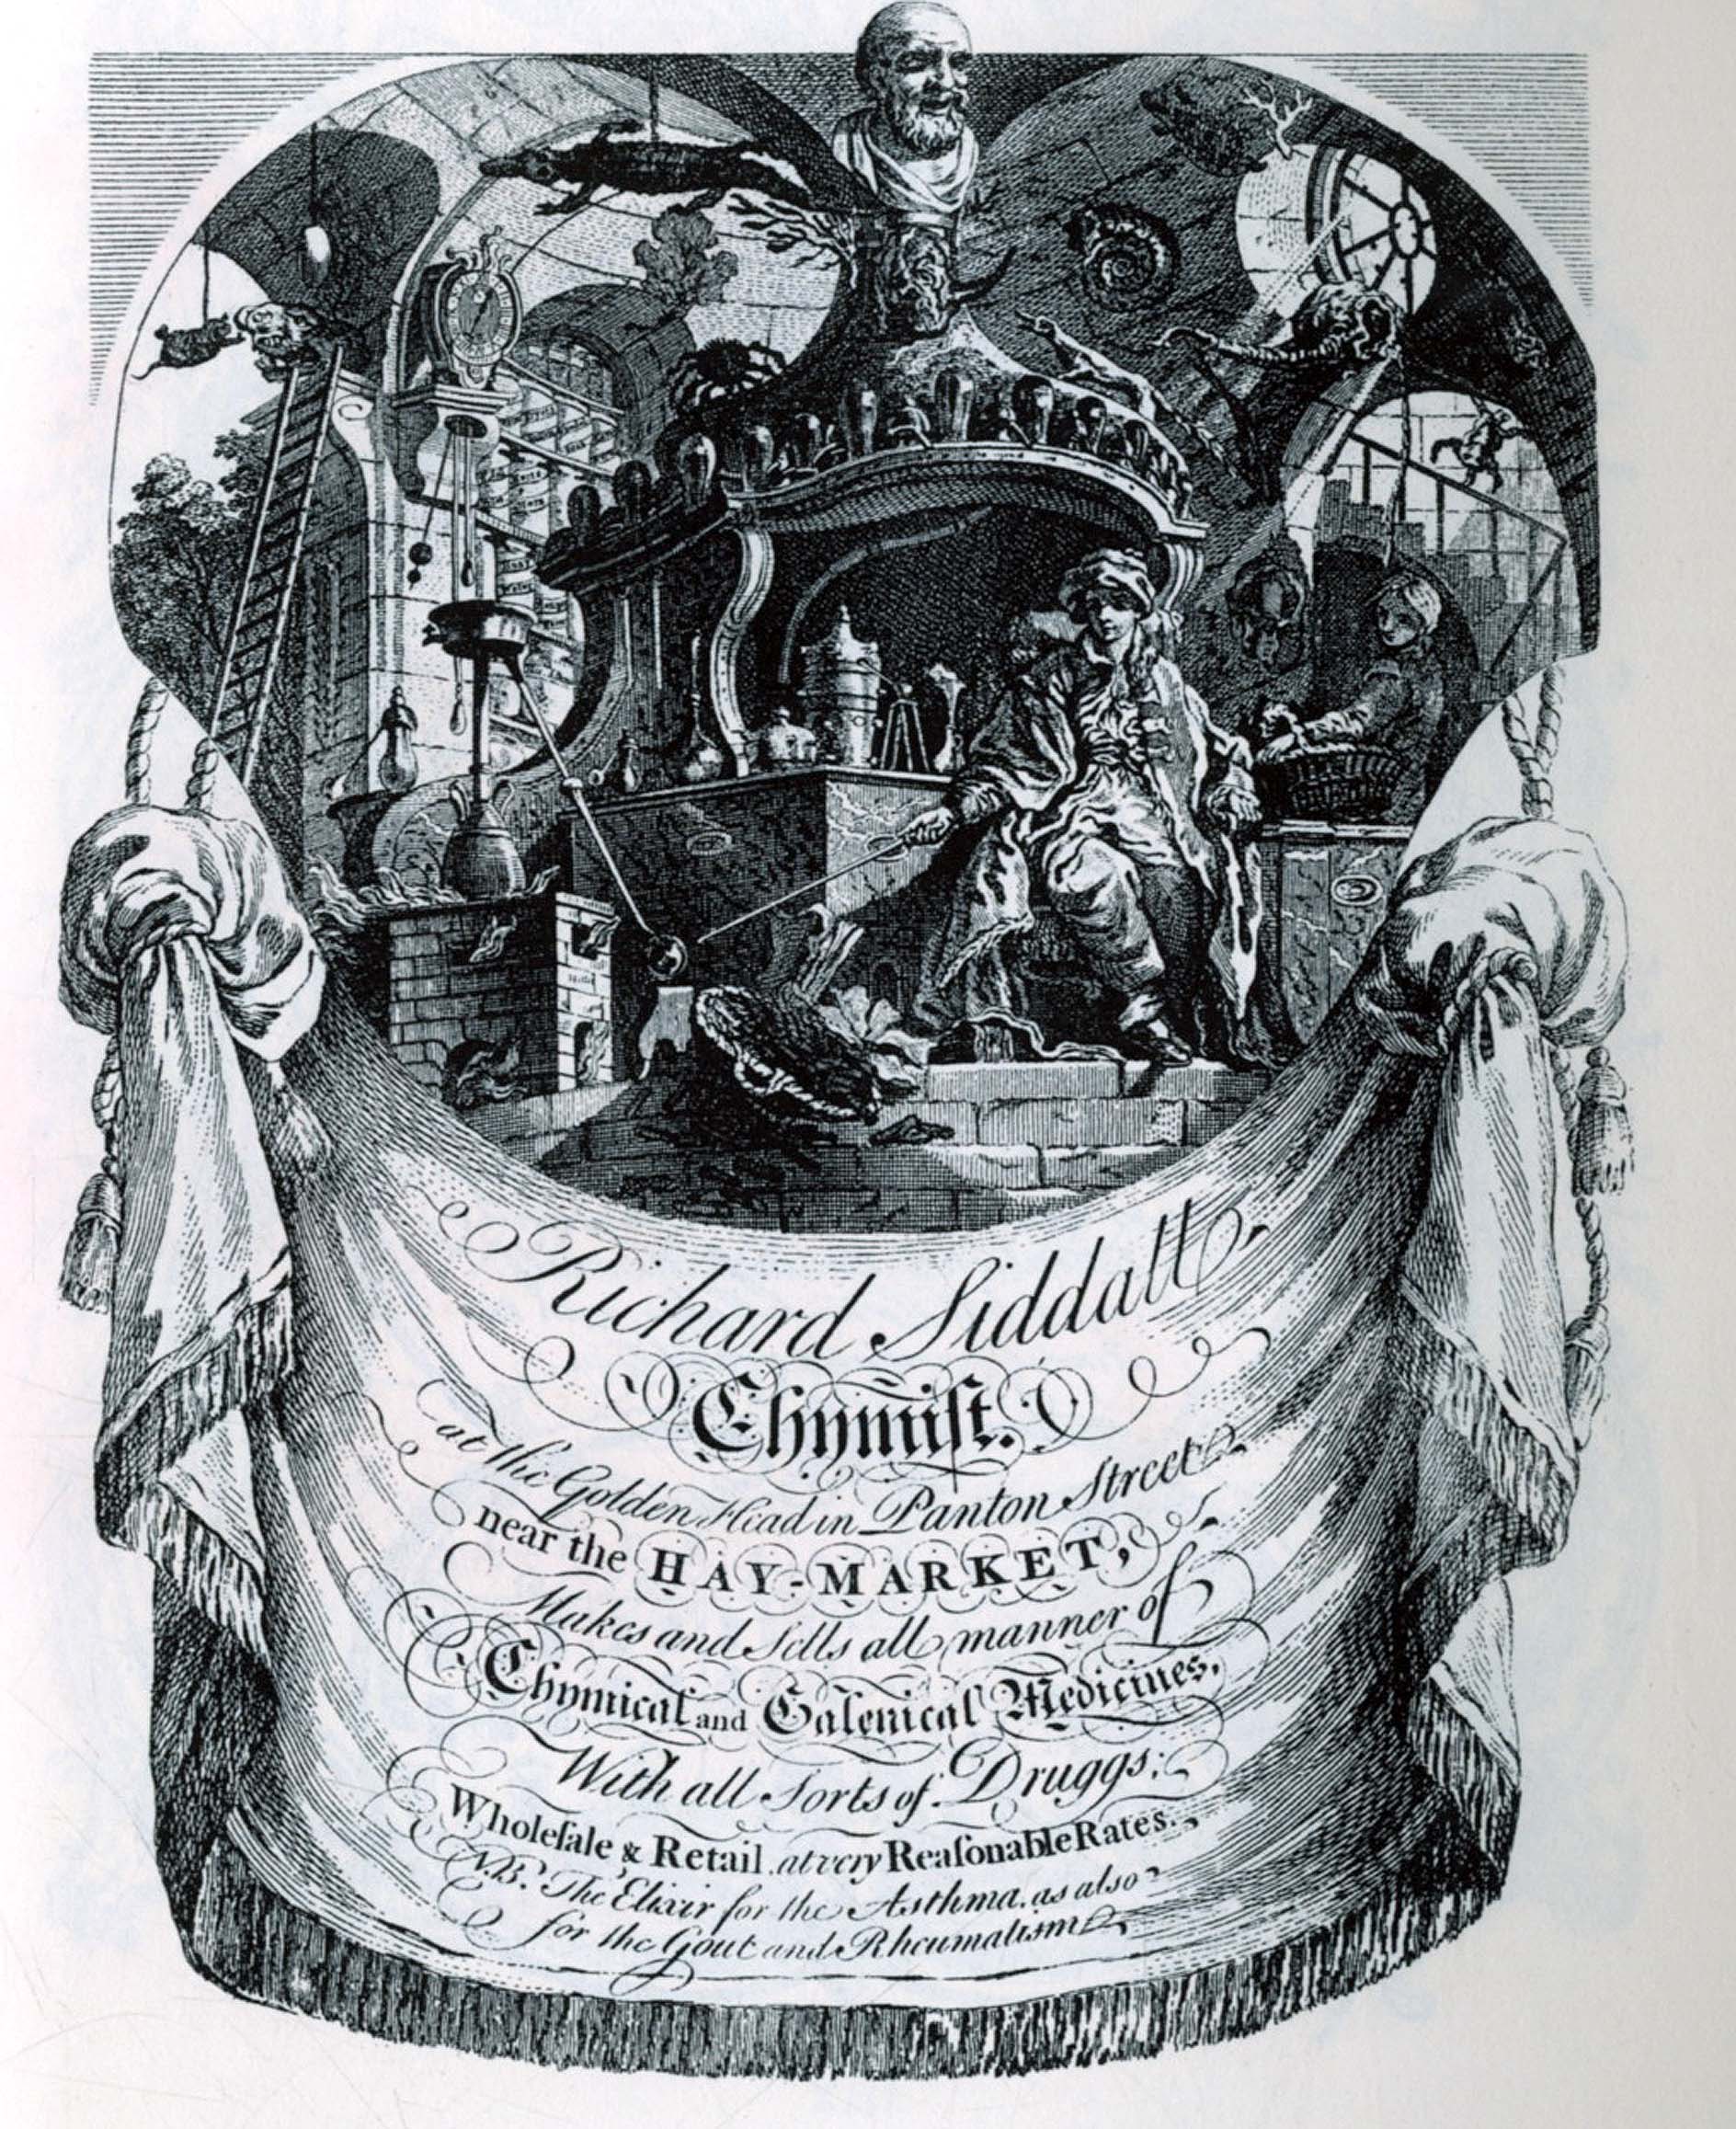 Richard Siddall
Chymiſt.
at the Golden Head in Panton Street
near the HAY-MARKET,
Makes and Sells all manner of
Chymical and Galenical Medicines,
With all Sorts of Druggs;
Wholeſale & Retail at very Reaſonable Rates.
N.B. The Elixir for the Asthma, as also
for the Gout and Rheumatism